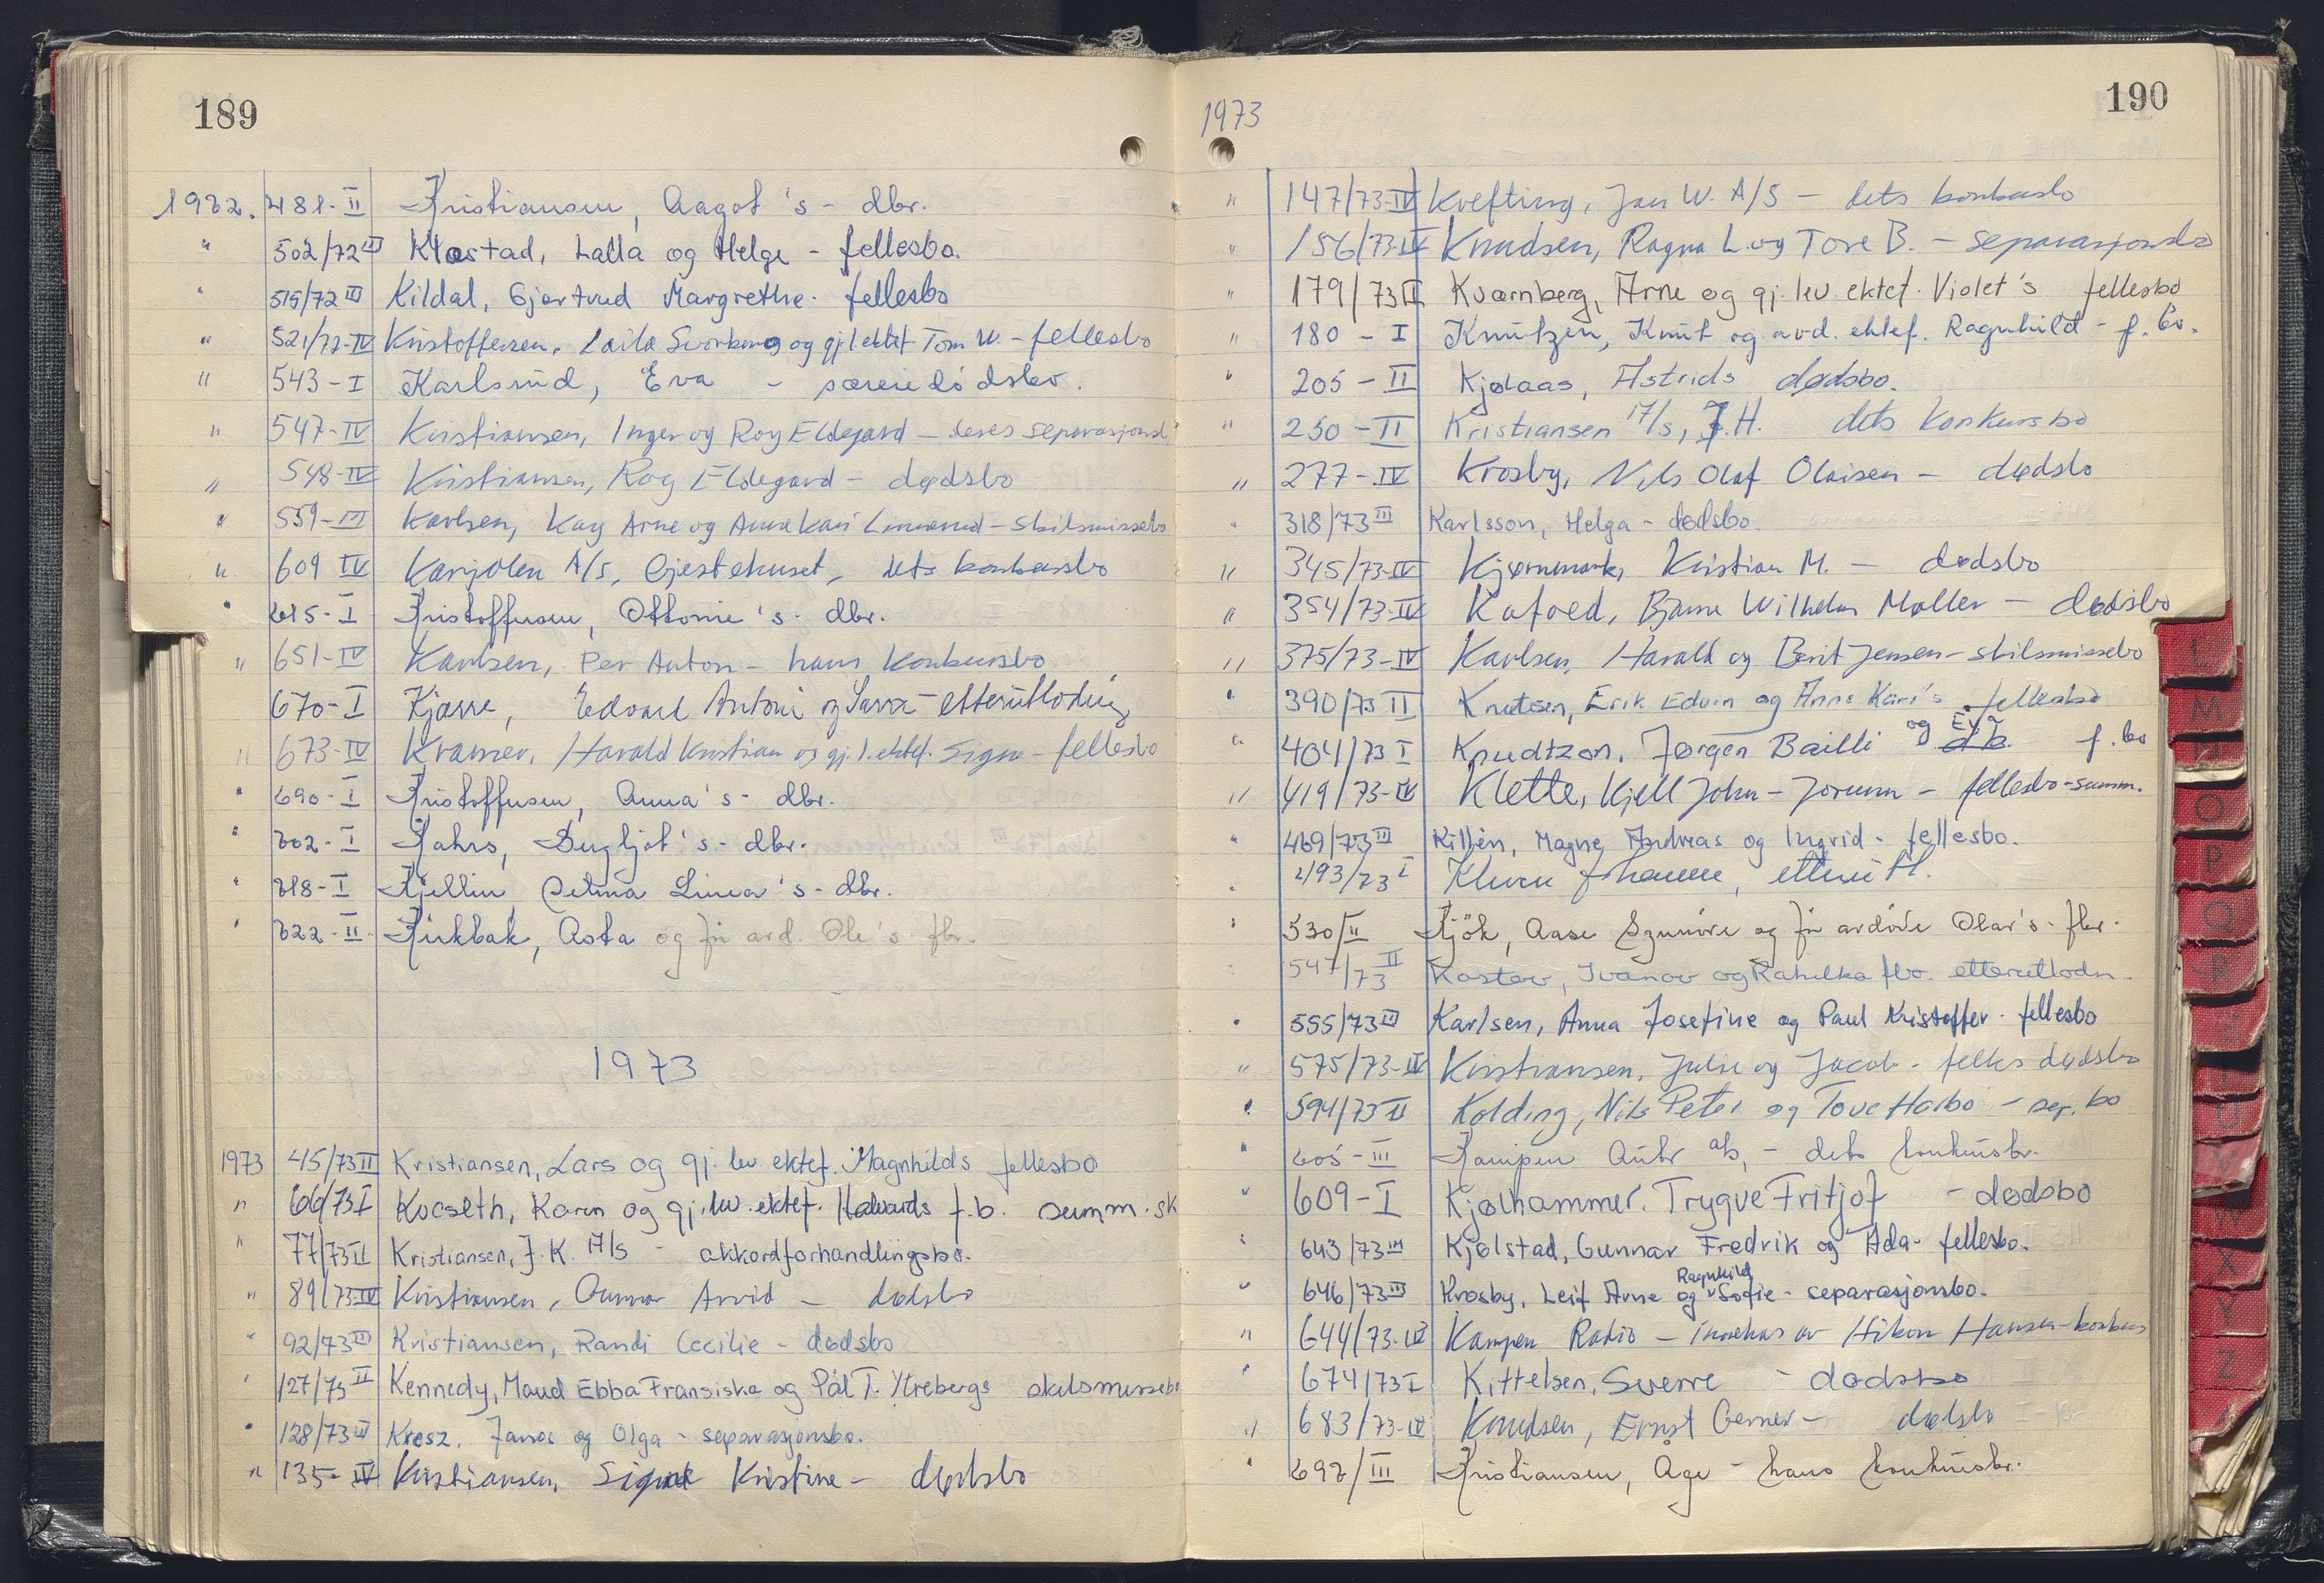 189
1972. 481-II Kristiansen, Aagot's - dbr.
" 502/72 III Klostad, Lalla og Helge - fellesbo.
" 519/72 III Kildal, Gjertrud Margrethe - fellesbo
" 521/72-IV Kristoffersen, Laila og gj.l. ektef. Tom W. - fellesbo
" 543-I Karlsrud, Eva - særeie dødsbo.
" 547-IV Kristiansen, Inger og Roy Eldegard - deres separasjonsb
" 548-IV Kristiansen, Roy Eldegard - dødsbo
" 559-III Karlsen, Kay Arne og Anne Kari - skilsmissebo
" 609 IV Karjolen A/S, Gjestehuset, dets konkursbo
" 615-I Kristoffersen, Ottonie's - dbr.
" 651-IV Karlsen, Per Anton - hans konkursbo
670-I Kjærre, Edvard Antoni og - etterutlodning
" 673-IV Kramer, Harald Kristian og gj.l. ektef. Signe - fellesbo
" 690-I Kristoffersen, Anna's - dbr.
" 702-I Kahrs, Dugljot's - dbr.
" 718-I Kjellin, Selma Linea's - dbr.
" 722-II Kirkbak, Asta og før avd. Ole's - fbr.
1973
1973 45/73 II Kristiansen, Lars og gj. lev ektef. Magnhilds fellesbo
" 66/73 I Kvaseth, Karen og gj. lev. ektef. Halvards f.b. summ. sk
" 77/73 II Kristiansen, J.K. A/S - akkordforhandlingsbo.
" 89/73-IV Kristiansen, Gunnar Arvid - dødsbo
" 92/73 III Kristiansen, Randi Cecilie - dødsbo
" 127/73 II Kennedy, Maud Ebba Fransiska og Pål T. Ytrebergs skilsmissebo
" 128/73 III Kresz, Janos og Olga - separasjonsbo.
" 135-IV Kristiansen, Kristine - dødsbo
190
1973
" 147/73-IV Krefting, Jan W. A/S - dets konkursbo
" 156/73-IV Knudsen, Ragna L. og Tore B. - separasjonsbo
" 179/73 II Kvarnberg, Arne og gj. lev. ektef. Violet's fellesbo
" 180-I Knutzen, Knut og avd. ektef. Ragnhild - f. bo.
" 205-II Kjølaas, Astrids dødsbo.
" 230-II Kristiansen A/S, J.H. dets konkursbo
" 277-IV Krosby, Nils Olaf Olaisen - dødsbo
" 318/73 III Karlsson, Helga - dødsbo
" 345/73-IV Kjernmark, Kristian M. - dødsbo
" 354/73-IV Kofoed, Bjarne Wilhelm Møller - dødsbo
" 375/73-IV Karlsen, Harald og Berit Jensen - skilsmissebo
" 390/73 II Knutsen, Erik Edvin og Anne Kari's fellesbo
" 404/73 I Knudtzon, Jørgen Bailli og Eva d.b. f. bo
" 419/73-IV Klette, Kjell John - Jorunn - fellesbo - summ.
" 469/73 III Killèn, Magne Andreas og Ingrid - fellesbo.
" 493/73 I Kluven Johanne, etterutl.
" 530/II Kjök, Aase og før avdøde Olav's - fbr.
" 547/73 II Kostov, Ivanov og Rahilka fbo. etterutlodn.
" 555/73 III Karlsen, Anna Josefine og Paul Kristoffer - fellesbo
" 575/73-IV Kristiansen, Julie og Jacob - felles dødsbo
" 594/73 II Kolding, Nils Peter og Tove Harbo - sep. bo
" 605-III Kampen Auto A/S, - dets konkursbr.
" 609-I Kjølhammer, Trygve Fritjof - dødsbo
" 643/73 III Kjølstad, Gunnar Fredrik og Ada - fellesbo.
" 646/73 III Krosby, Leif Arne og Ragnhild Sofie - separasjonsbo.
" 644/73-IV Kampen Radio - innehas av Håkon Hansen - konkurs
" 674/73 I Kittelsen, Sverre - dødsbo
" 683/73-IV Knudsen, Ernst Gerner - dødsbo
" 692/III Kristiansen, Åge - hans konkursbr.
L
M
N
O
P
Q
R
T
U
V
W
X
Y
Z